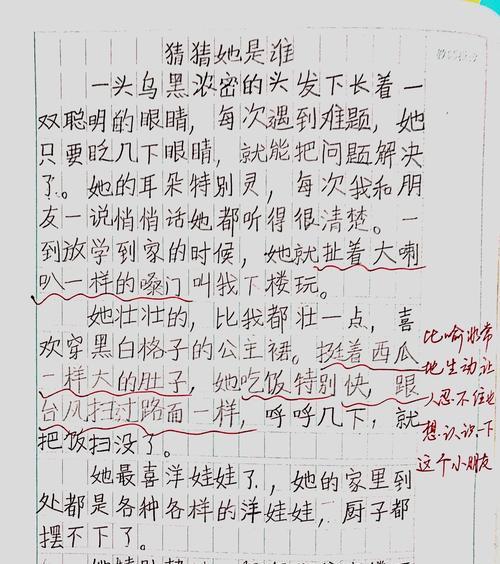 猜猜她是谁
一头乌黑浓密的头发下长着一
双聪明的眼睛，每次遇到难题，她
只要眨几下眼睛，就能把问题解决
了。她的耳朵特别灵，每次我和朋
友一说悄悄话她都听得很清楚。一
到放学到家的时候，她就扯着大喇
叭一样的嗓门叫我下楼玩。
她壮壮的，比我都壮一点，喜
欢穿黑白格子的公主裙。挺着西瓜
一样大的肚子，她吃饭特别快，跟
台风扫过路面一样，呼呼几下，就
把饭扫没了。
她最喜洋娃娃了，她的家里到
处都是各种各样的洋娃娃，厨子都
摆不下了。
比喻非常
地生动让
人忍不住也
想认识下
这个小朋友